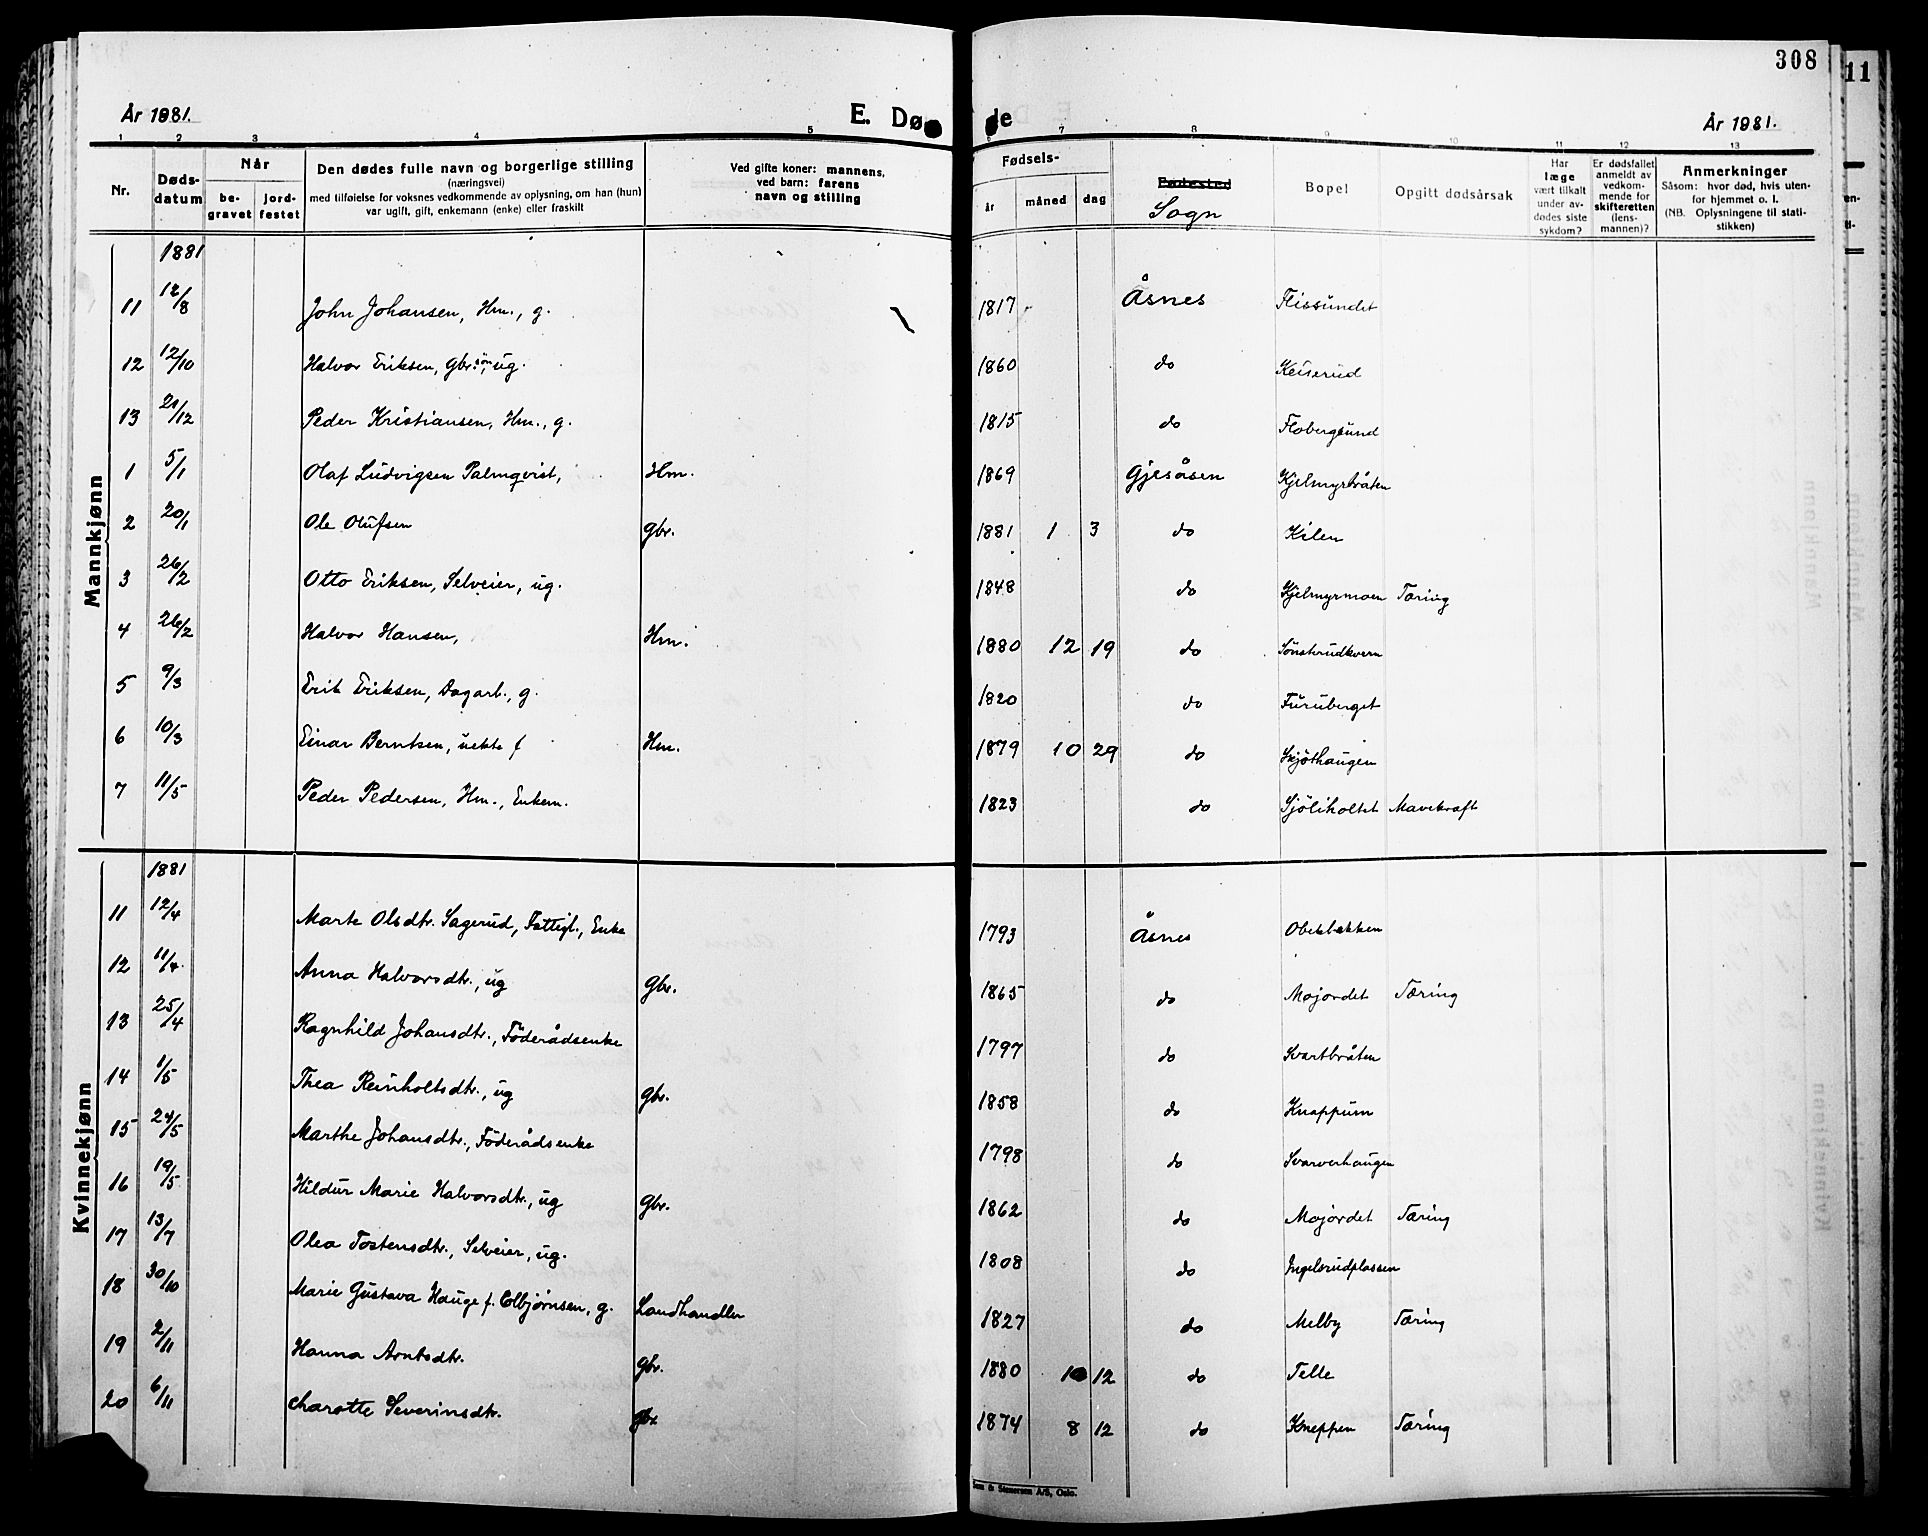 308
11
År 1881.
E. Dø de
År 1881.
1 2 3 4 5 6 7 8 9 10 11 12 13
Nr.
Døds-
datum
Når
be-
gravet
jord-
festet
Den dødes fulle navn og borgerlige stilling
(næringsvei)
med tilføielse for voksnes vedkommende av oplysning, om han (hun)
var ugift, gift, enkemann (enke) eller fraskilt
Ved gifte koner: mannens,
ved barn: farens
navn og stilling
Fødsels-
år måned dag
Fødested
Sogn
Bopel
Opgitt dødsårsak
Har
læge
vært tilkalt
under av-
dødes siste
sykdom?
Er dødsfallet
anmeldt av
vedkom-
mende for
skifteretten
(lens-
mannen)?
Anmerkninger
Såsom: hvor død, hvis uten-
for hjemmet o. l.
(NB. Oplysningene til stati-
stikken)
Mannkjønn
1881
11 12/8 John Johansen, Hm., g. 1817 Åsnes Flissundet
12 12/10 Halvor Eriksen, Gbr.søn, ug. 1860 do Keiserud
13 21/12 Peder Kristiansen, Hm., g. 1815 do Flobergsund
1 5/1 Olaf Ludvigsen Palmqvist, Hm. 1869 Gjesåsen Kjelmyrbråten
2 20/1 Ole Olufsen gbr. 1881 1 3 do Kilen
3 26/2 Otto Eriksen, Selveier, ug. 1848 do Kjelmyrmoen Tæring
4 26/2 Halvor Hansen, Hm. 1880 12 19 do Sønsterudkvern
5 9/3 Erik Eriksen, Dagarb., g. 1820 do Furuberget
6 10/3 Einar Berntsen, uekte f Hm. 1879 10 29 do Skjøthaugen
7 11/5 Peder Pedersen, Hm., Enkem. 1823 do Sjøliholtet Mavekræft
Kvinnekjønn
1881
11 12/4 Marte Olsdtr. Sagerud, Fattigl., Enke 1793 Åsnes Obekbakken
12 11/4 Anna Halvorsdtr., ug Gbr. 1865 do Mojordet Tæring
13 25/4 Ragnhild Johansdtr., Föderådsenke 1797 do Svartbråten
14 1/5 Thea Reinholtsdtr., ug gbr. 1858 do Knappum
15 24/5 Marthe Johansdtr., Föderådsenke 1798 do Svarverhaugen
16 19/5 Hildur Marie Halvorsdtr., ug Gbr. 1862 do Mojordet Tæring
17 13/7 Olea Tostensdtr., Selveier, ug. 1808 do Ingelsrudplassen
18 30/10 Marie Gustava Hauge f. Elbjørnsen, g. Landhandler 1827 do Melby Tæring
19 2/11 Hanna Arntsdtr. gbr. 1880 10 12 do Telle
20 6/11 Charotte Severinsdtr. gbr 1874 8 12 do Kneppen Tæring
Sem & Stenersen A/S, Oslo.